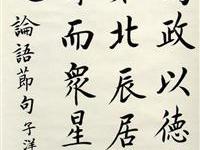 政以德
北辰居
而眾星
論語節句 子洋